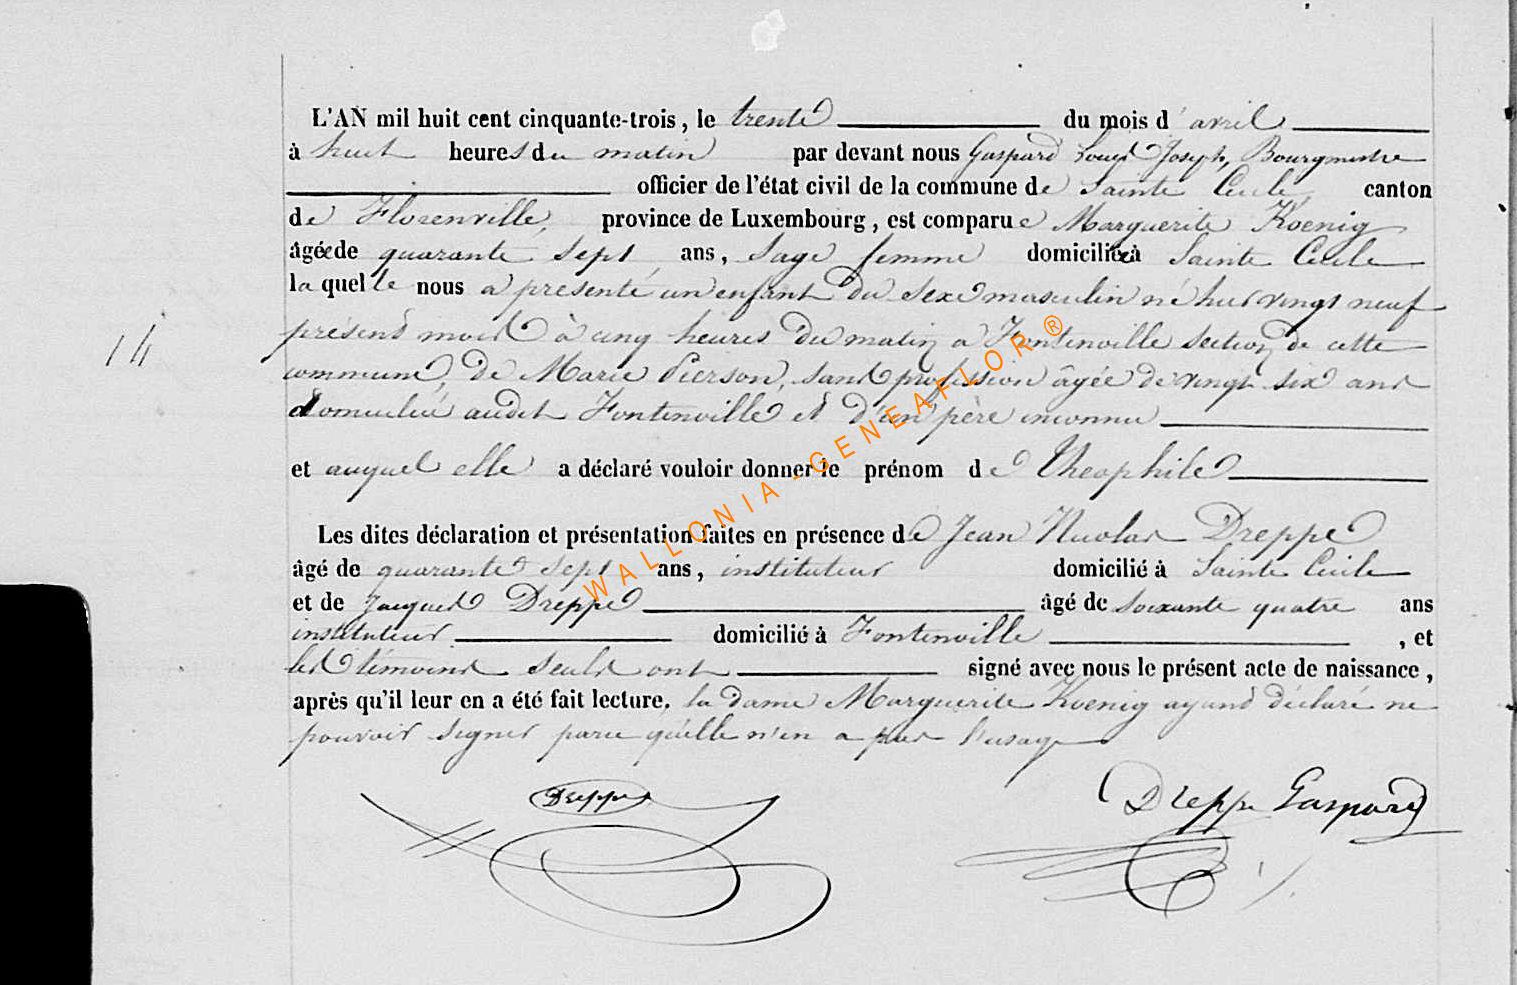 L'AN mil huit cent cinquante-trois, le trente du mois d'avril
à huit heures du matin par devant nous Gaspard Louis Joseph, Bourgmestre
officier de l'état civil de la commune de Sainte Cecile, canton
de Florenville, province de Luxembourg, est comparue Marguerite Koenig
âgée de quarante sept ans, sage femme domiciliée à Sainte Cecile
laquelle nous a présenté un enfant du sexe masculin né hier vingt neuf
présent mois à cinq heures du matin a Fontenoille section de cette
commune, de Marie Pierson, sans profession âgée de vingt six ans
domiciliée audit Fontenoille et d'un père inconnu
et auquel elle a déclaré vouloir donner le prénom de Théophile
Les dites déclaration et présentation faites en présence de Jean Nicolas Dreppe
âgé de quarante sept ans, instituteur domicilié à Sainte Cecile
et de Jacques Dreppe âgé de soixante quatre ans
instituteur domicilié à Fontenoille, et
les témoins seuls ont signé avec nous le présent acte de naissance,
après qu'il leur en a été fait lecture, la dame Marguerite Koenig ayant déclaré ne
pouvoir signer parce qu'elle n'en a pas l'usage
14
Dreppe Dreppe Gaspard
WALLONIA-GENEAFLOR®